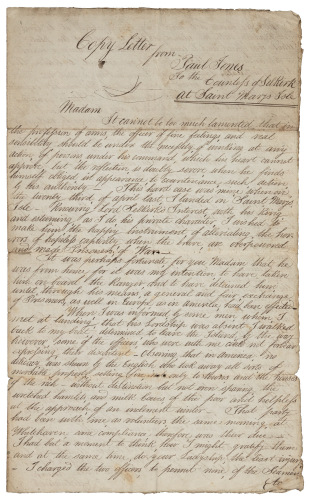 Copy Letter
from
Paul Jones
To the Countess of Selkirk
at Saint Marys Isle
Madam
It cannot be too much lamented that in
the profession of arms, the officer of fine feelings and real
sensibility should be under the necessity of winking at any
action of persons under his command, which his heart cannot
approve, but the reflection is doubly severe when he finds
himself obliged in appearance, to countenance such action
by his authority This hard case was mine when on
the twenty third, of april last I landed in Saint Marys
Isle Knowing Lord Selkirk's Interest with his King
and esteeming as I do his private character I wished to
make him the happy Instrument of alleviating the hor-
rors of hopeless captivity when the brave are overpowered
and made Prisoners of War
It was perhaps fortunate for you Madam that he
was from home for it was my intention to have taken
him on board the Ranger, and to have detained him
until through his means, a general and fair exchange
of Prisoners, as well in Europe as in America, had been effected
When I was informed by some men whom I
met at landing that his Lordship was absent I walked
back to my boat determined to leave the Island, by the way
however some of the officers who were with me could not refrain
expressing their discontent Observing that in America no
delicacy was shown by the English who took away all sorts of
moveable property setting fire not only to towns and the houses
of the rich without distinction but not even sparing the
wretched hamlets and milk cows of the poor and helpless
at the approach of an inclement winter That party
had been with me as volunteers the same morning at
Whitehaven some complaisance therefore was their due
I had but a moment to think how I might gratify them
and at the same time do your Ladyship the least injury
I charged the two officers to permit none of the Seamen
to